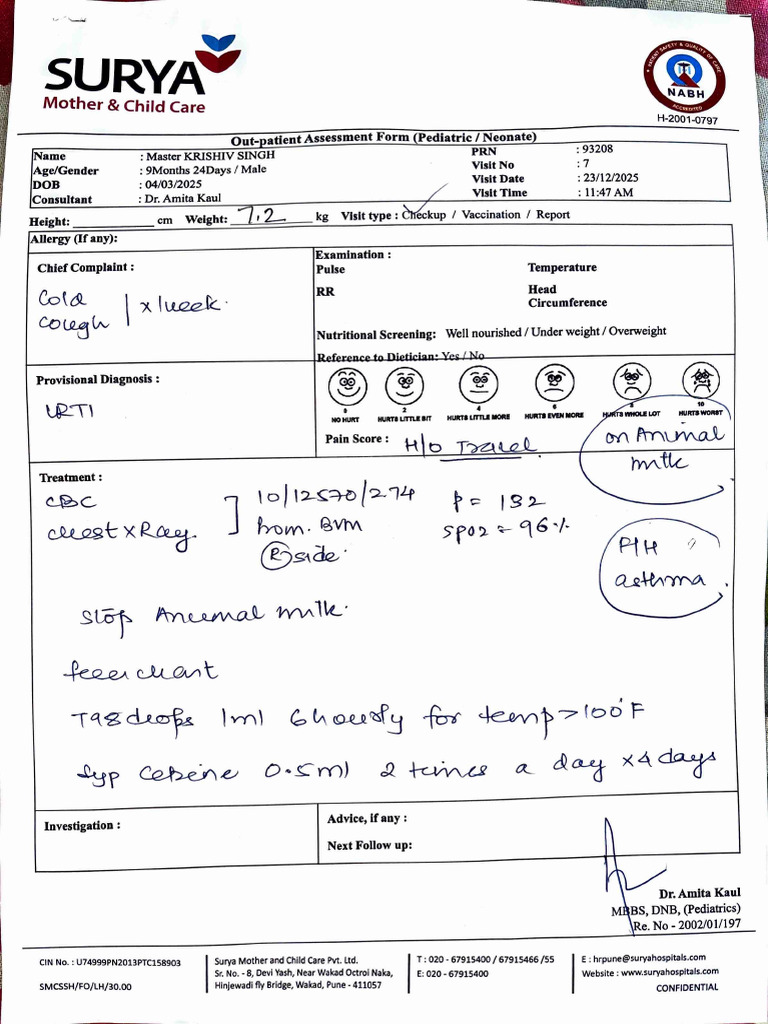 SURYA
Mother & Child Care
PATIENT SAFETY & QUALITY OF CARE
NABH
ACCREDITED
H-2001-0797
Out-patient Assessment Form (Pediatric / Neonate)
Name : Master KRISHIV SINGH PRN : 93208
Age/Gender : 9Months 24Days / Male Visit No : 7
DOB : 04/03/2025 Visit Date : 23/12/2025
Consultant : Dr. Amita Kaul Visit Time : 11:47 AM
Height: cm Weight: 7.2 kg Visit type : Checkup / Vaccination / Report
Allergy (If any):
Chief Complaint :
Cold
Cough | x 1week.
Examination :
Pulse Temperature
RR Head
Circumference
Nutritional Screening: Well nourished / Under weight / Overweight
Reference to Dietician: Yes / No
Provisional Diagnosis :
URTI
0 2 4 6 8 10
NO HURT HURTS LITTLE BIT HURTS LITTLE MORE HURTS EVEN MORE HURTS WHOLE LOT HURTS WORST
Pain Score : H/o Travel
on Animal
milk
Treatment :
CBC ] 10/12570/2.74 P = 132
chest xRay. Prom. BVM SPO2 = 96%
(R) side.
F/H
asthma
Stop Animal milk.
fever chart
T98 drops 1ml 6 hourly for temp > 100°F
Syp 0.5ml 2 times a day x4 days
Investigation :
Advice, if any :
Next Follow up:
Dr. Amita Kaul
MBBS, DNB, (Pediatrics)
Re. No - 2002/01/197
CIN No. : U74999PN2013PTC158903
SMCSSH/FO/LH/30.00
Surya Mother and Child Care Pvt. Ltd.
Sr. No. - 8, Devi Yash, Near Wakad Octroi Naka,
Hinjewadi fly Bridge, Wakad, Pune - 411057
T : 020 - 67915400 / 67915466 /55
E: 020 - 67915400
E : hrpune@suryahospitals.com
Website : www.suryahospitals.com
CONFIDENTIAL